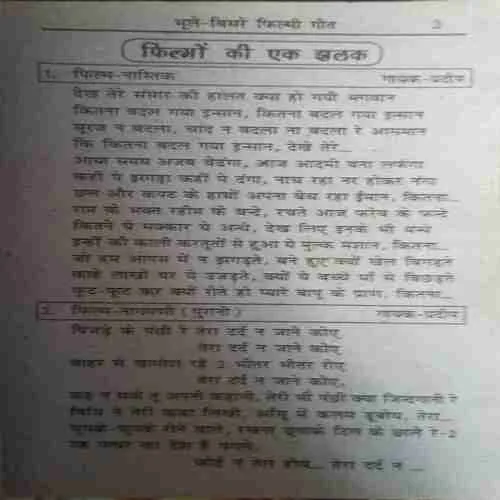 भूले-बिसरे फिल्मी गीत 3
फिल्मों की एक झलक
1. फिल्म-नास्तिक गायक-प्रदीप
देख तेरे संसार की हालत क्या हो गयी भगवान
कितना बदल गया इन्सान, कितना बदल गया इन्सान
सूरज न बदला, चांद न बदला ना बदला रे आसमान
कि कितना बदल गया इन्सान, देख तेरे...
आया समय अजब बेढंगा, आज आदमी बना लफंगा
कहीं पे झगड़ा कहीं पे दंगा, नाच रहा नर होकर नंगा
छल और कपट के हाथों अपना बेच रहा ईमान, कितना...
राम के भक्त रहीम के बन्दे, रचते आज फरेब के फन्दे
कितने ये मक्कार ये अन्धे, देख लिए इनके भी धन्धे
इन्हीं की काली करतूतों से हुआ ये मुल्क मशान, कितना...
जो हम आपस में न झगड़ते, बने हुए क्यों खेल बिगड़ते
काहे लाखों घर ये उजड़ते, क्यों ये बच्चे माँ से बिछड़ते
फूट-फूट कर क्यों रोते हो प्यारे बापू के प्राण, कितना...
2. फिल्म-नागमणी (पुरानी) गायक-प्रदीप
पिंजड़े के पंछी रे तेरा दर्द न जाने कोए
तेरा दर्द न जाने कोए
बाहर से खामोश रहे 2 भीतर भीतर रोए
तेरा दर्द न जाने कोए,
कह न सके तू अपनी कहानी, तेरी भी पंछी क्या जिन्दगानी रे
विधि ने तेरी कथा लिखी, आँसू में कलम डूबोय, तेरा...
चुपके चुपके रोने वाले, रखना छुपाके दिल के छाले रे-2
यह पत्थर का देश है पगले,
कोई न तेरा होय... तेरा दर्द न ...